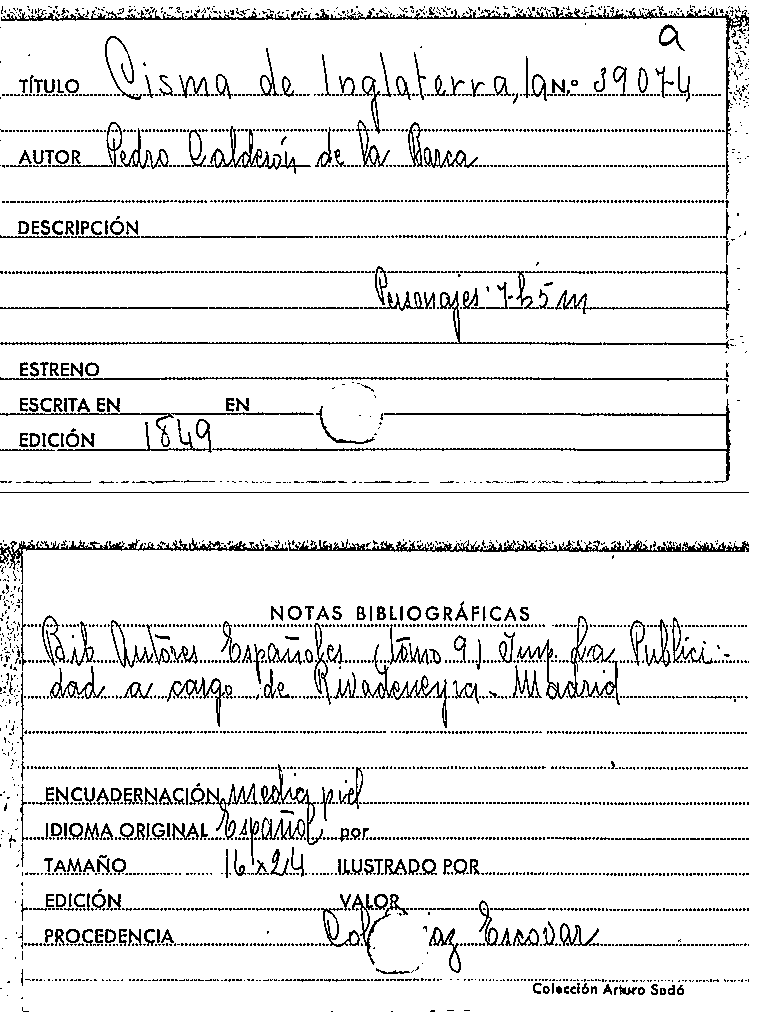 a
TÍTULO Cisma de Inglaterra, la N.º 3907-4
AUTOR Pedro Calderón de la Barca
DESCRIPCIÓN
Personajes: 7-h 5 m
ESTRENO
ESCRITA EN EN
EDICIÓN 1849
NOTAS BIBLIOGRÁFICAS
Bib Autores Españoles (tomo 9) Imp. La Publici-
dad a cargo de Rivadeneyra - Madrid
ENCUADERNACIÓN media piel
IDIOMA ORIGINAL Español por
TAMAÑO 16 x 24 ILUSTRADO POR
EDICIÓN VALOR
PROCEDENCIA Escovar
Colección Arturo Sedó